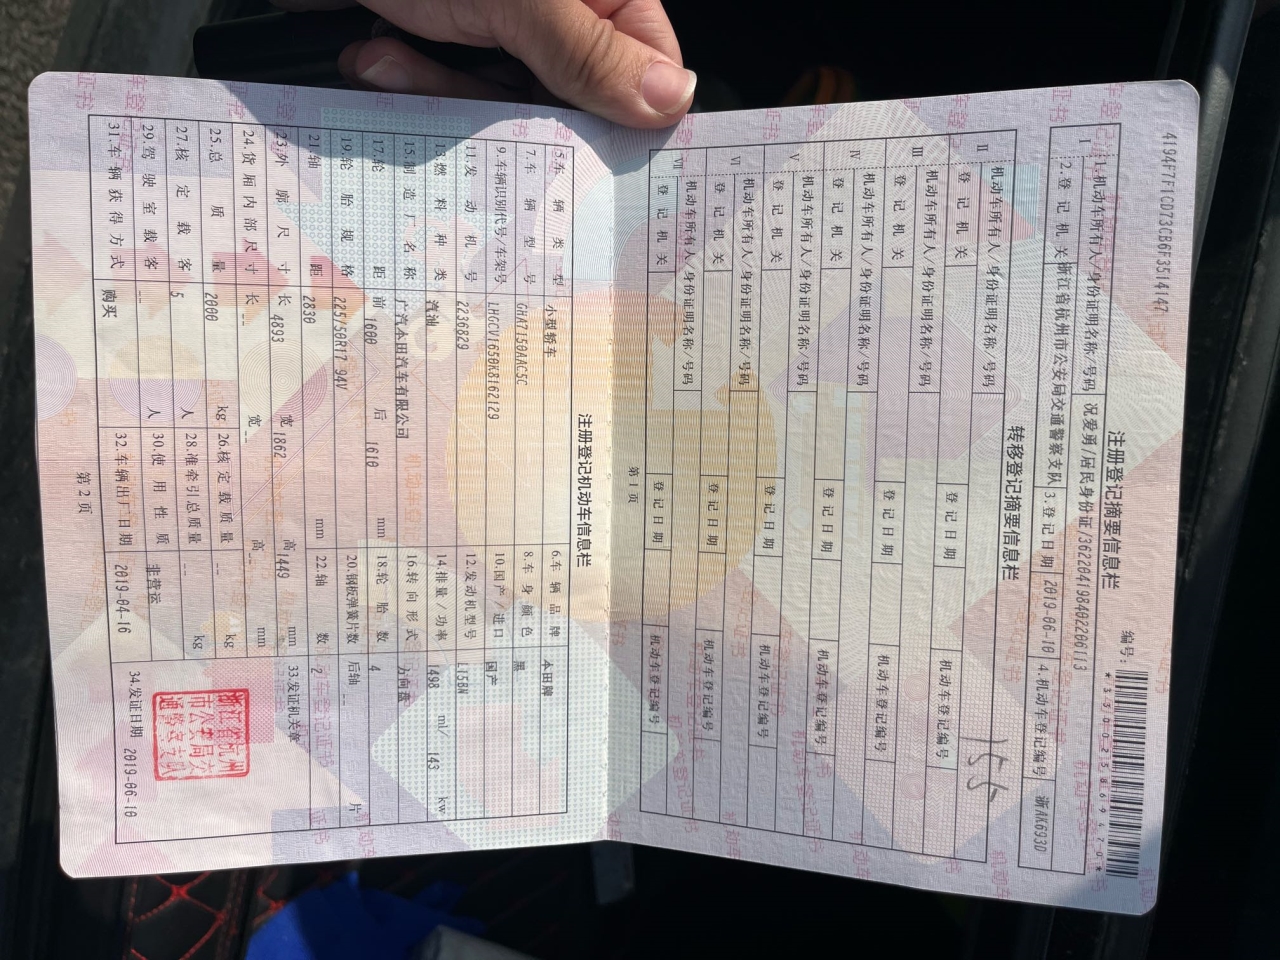 4194F7F1CD73CB6F3514147
编号：
*330025869470*
注册登记摘要信息栏
I
1.机动车所有人/身份证明名称/号码 况爱勇/居民身份证/362204198402206113
2.登记机关 浙江省杭州市公安局交通警察支队 3.登记日期 2019-06-10 4.机动车登记编号 浙AK693D
转移登记摘要信息栏
II 机动车所有人/身份证明名称/号码
登记机关 登记日期 机动车登记编号
III 机动车所有人/身份证明名称/号码
登记机关 登记日期 机动车登记编号
IV 机动车所有人/身份证明名称/号码
登记机关 登记日期 机动车登记编号
V 机动车所有人/身份证明名称/号码
登记机关 登记日期 机动车登记编号
VI 机动车所有人/身份证明名称/号码
登记机关 登记日期 机动车登记编号
VII 机动车所有人/身份证明名称/号码
登记机关 登记日期 机动车登记编号
第 1 页
注册登记机动车信息栏
5.车辆类型 小型轿车 6.车辆品牌 本田牌
7.车辆型号 GHA7150AAC5C 8.车身颜色 黑
9.车辆识别代号/车架号 LHGCV1650K8162129 10.国产/进口 国产
11.发动机号 2236829 12.发动机型号 L15BN
13.燃料种类 汽油 14.排量/功率 1498 ml/ 143 kw
15.制造厂名称 广汽本田汽车有限公司 16.转向形式 方向盘
17.轮距 前 1600 后 1610 mm 18.轮胎数 4
19.轮胎规格 225/50R17 94V 20.钢板弹簧片数 后轴 -- 片
21.轴距 2830 mm 22.轴数 2
23.外廓尺寸 长 4893 宽 1862 高 1449 mm 33.发证机关章
24.货厢内部尺寸 长 -- 宽 -- 高 -- mm
25.总质量 2000 kg 26.核定载质量 -- kg
27.核定载客 5 人 28.准牵引总质量 -- kg
29.驾驶室载客 -- 人 30.使用性质 非营运
31.车辆获得方式 购买 32.车辆出厂日期 2019-04-16 34.发证日期 2019-06-10
第 2 页